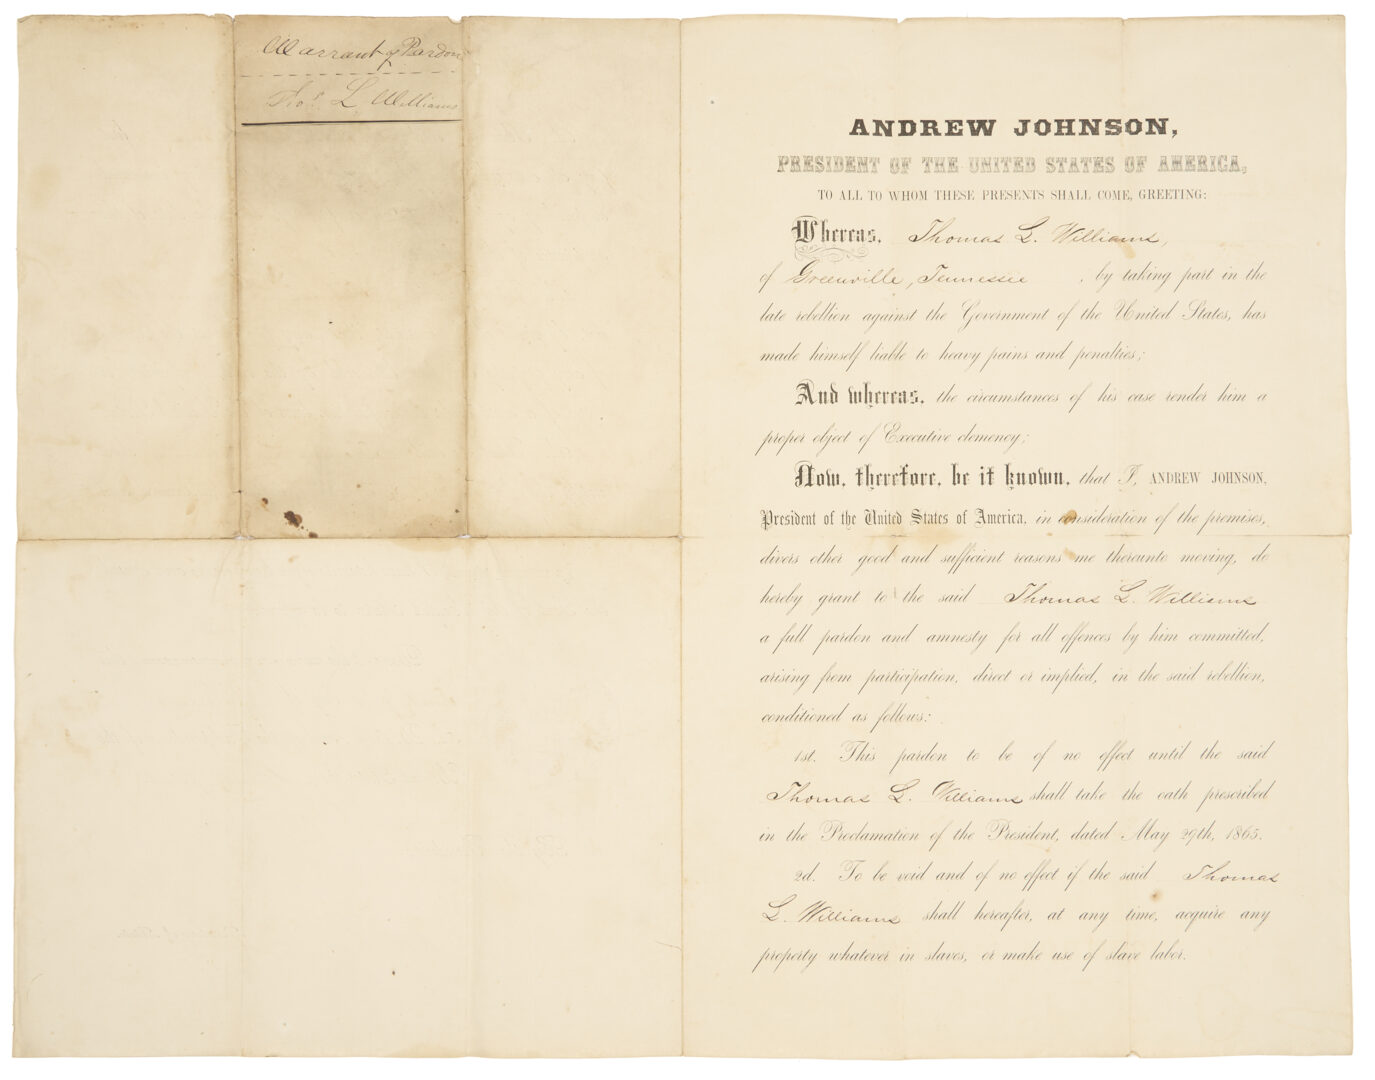 Warrant of Pardon
Thos. L. Williams
ANDREW JOHNSON,
PRESIDENT OF THE UNITED STATES OF AMERICA,
TO ALL TO WHOM THESE PRESENTS SHALL COME, GREETING:
Whereas, Thomas L. Williams,
of Greenville, Tennessee , by taking part in the
late rebellion against the Government of the United States, has
made himself liable to heavy pains and penalties;
And whereas, the circumstances of his case render him a
proper object of Executive clemency;
Now, therefore, be it known, that I, ANDREW JOHNSON,
President of the United States of America, in consideration of the premises,
divers other good and sufficient reasons me thereunto moving, do
hereby grant to the said Thomas L. Williams
a full pardon and amnesty for all offences by him committed,
arising from participation, direct or implied, in the said rebellion,
conditioned as follows:
1st. This pardon to be of no effect until the said
Thomas L. Williams shall take the oath prescribed
in the Proclamation of the President, dated May 29th, 1865.
2d. To be void and of no effect if the said Thomas
L. Williams shall hereafter, at any time, acquire any
property whatever in slaves, or make use of slave labor.